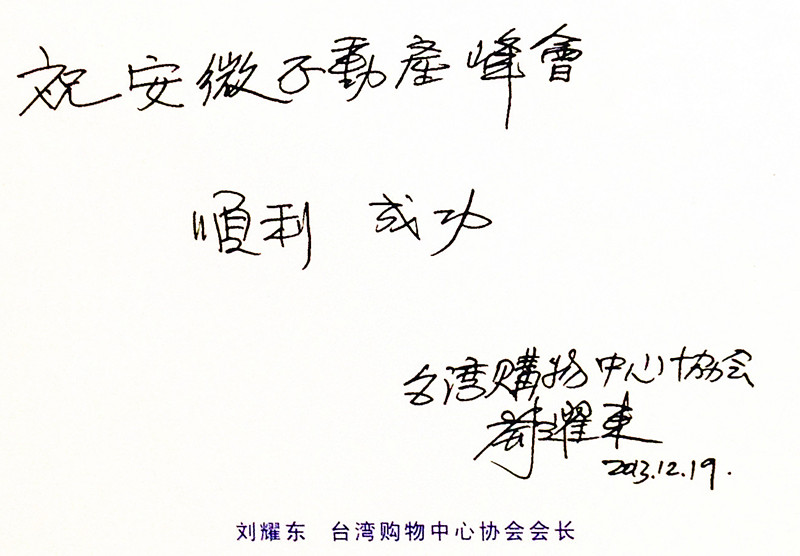 祝安微不動產峰會
順利 成功
台湾購物中心协会
劉耀東
2013.12.19.
刘耀东 台湾购物中心协会会长